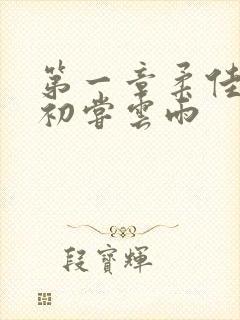 第一章柔佳
初尝雲雨
段寳輝